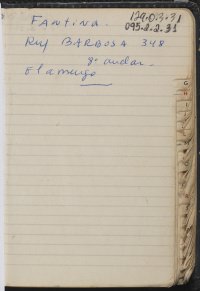 129.03.31
095.2.2.31
FANTINA.
Ruy BARBOSA 348
8º andar.
Flamengo